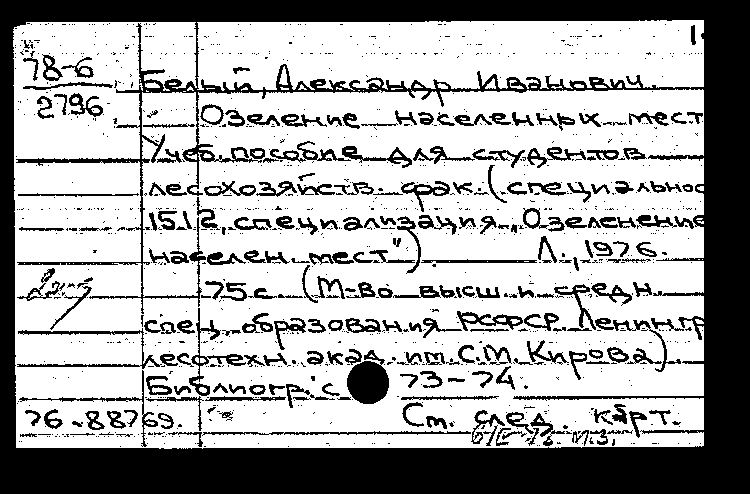 1.
78-6
2796
Белый, Александр Иванович.
Озеление населенных мест
Учеб. пособие для студентов
лесохозяйств. фак. (специальнос
1512, специализация „Озеленение
населен. мест"). Л., 1976.
75 с (М-во высш. и средн.
спец. образования РСФСР. Ленингр
лесотехн. акад. им. С.М. Кирова).
Библиогр.: с 73-74.
76-88769.
Ст. след. карт.